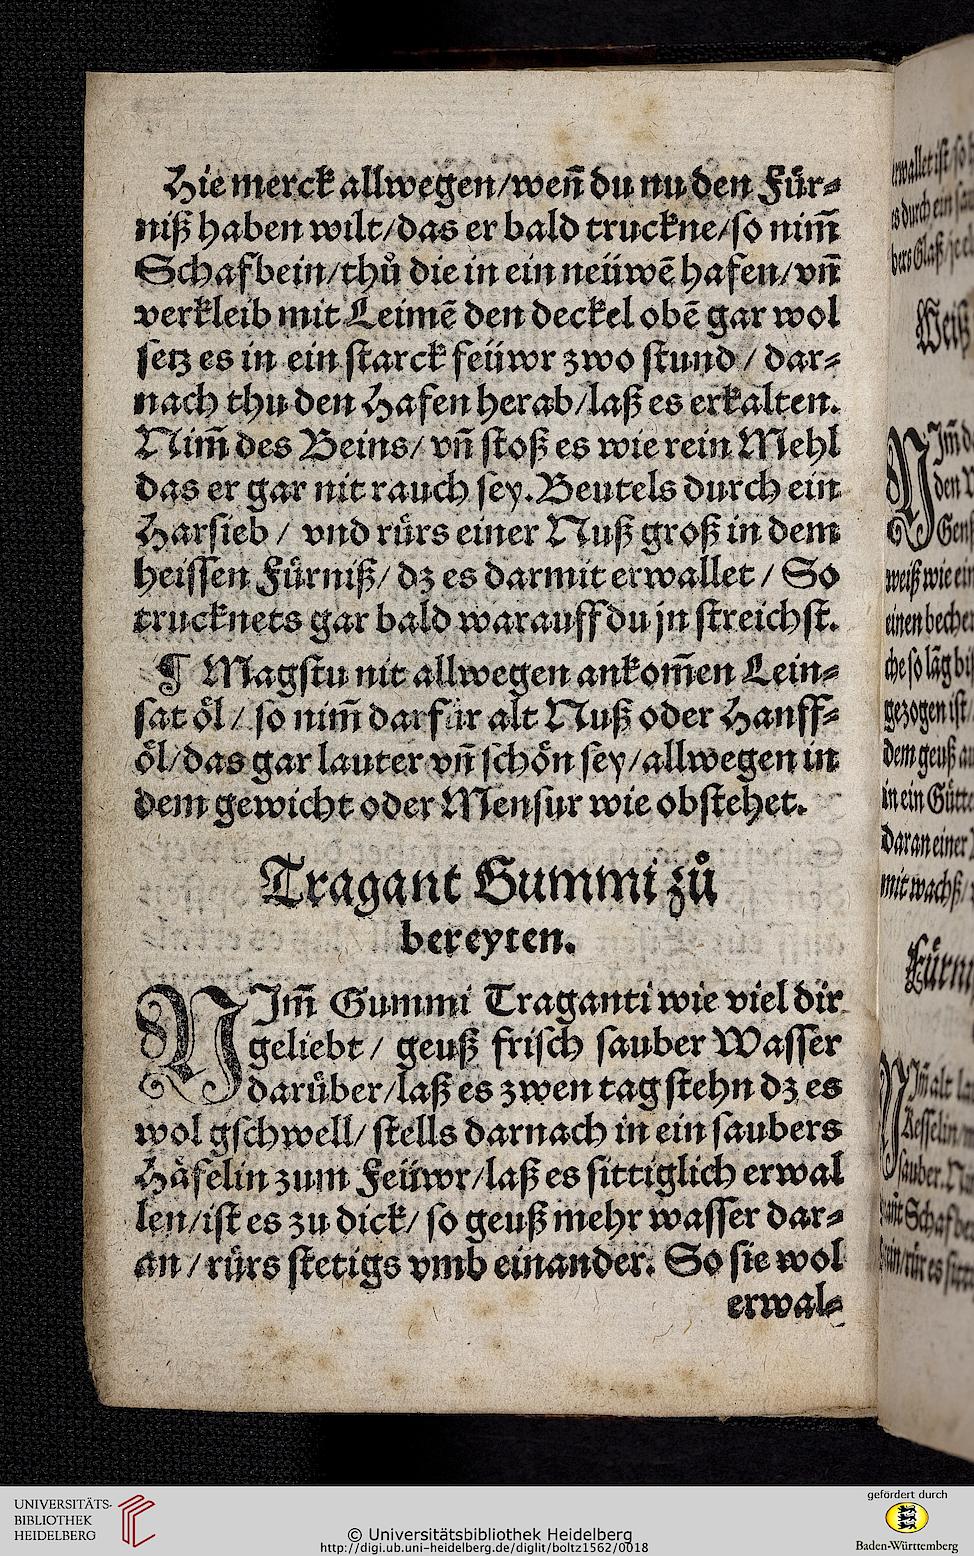 Hie merck allwegen/weñ du nu den Für⸗
niß haben wilt/das er bald truckne/so nim̃
Schafbein/thů die in ein neüwẽ hafen/vñ
verkleib mit Leimẽ den deckel obẽ gar wol
setz es in ein starck feüwr zwo stund / dar⸗
nach thu den Hafen herab/laß es erkalten.
Nim̃ des Beins/ vñ stoß es wie rein Mehl
das er gar nit rauch sey. Beutels durch ein
Harsieb / vnd rürs einer Nuß groß in dem
heissen Fürniß/ dz es darmit erwallet / So
trucknets gar bald warauff du jn streichst.
¶ Magstu nit allwegen ankom̃en Lein⸗
sat öl / so nim̃ darfür alt Nuß oder Hanff⸗
öl/das gar lauter vñ schön sey/allwegen in
dem gewicht oder Mensur wie obstehet.
Tragant Gummi zů
bereyten.
NIm̃ Gummi Traganti wie viel dir
geliebt / geuß frisch sauber Wasser
darüber/laß es zwen tag stehn dz es
wol gschwell/ stells darnach in ein saubers
Häfelin zum Feüwr/laß es sittiglich erwal
len/ist es zu dick/ so geuß mehr wasser dar⸗
an / rürs stetigs vmb einander. So sie wol
erwal⸗
erwallet ist
durch ein
Glaß
Weiß
NIm̃
den
weiß wie ein
einen becher
so lãg biß
gezogen ist
dem geuß
in ein
daran einer
mit wachß/
NIm̃ alt
Kesselin
sauber.
UNIVERSITÄTS-
BIBLIOTHEK
HEIDELBERG
© Universitätsbibliothek Heidelberg
http://digi.ub.uni-heidelberg.de/diglit/boltz1562/0018
gefördert durch
Baden-Württemberg